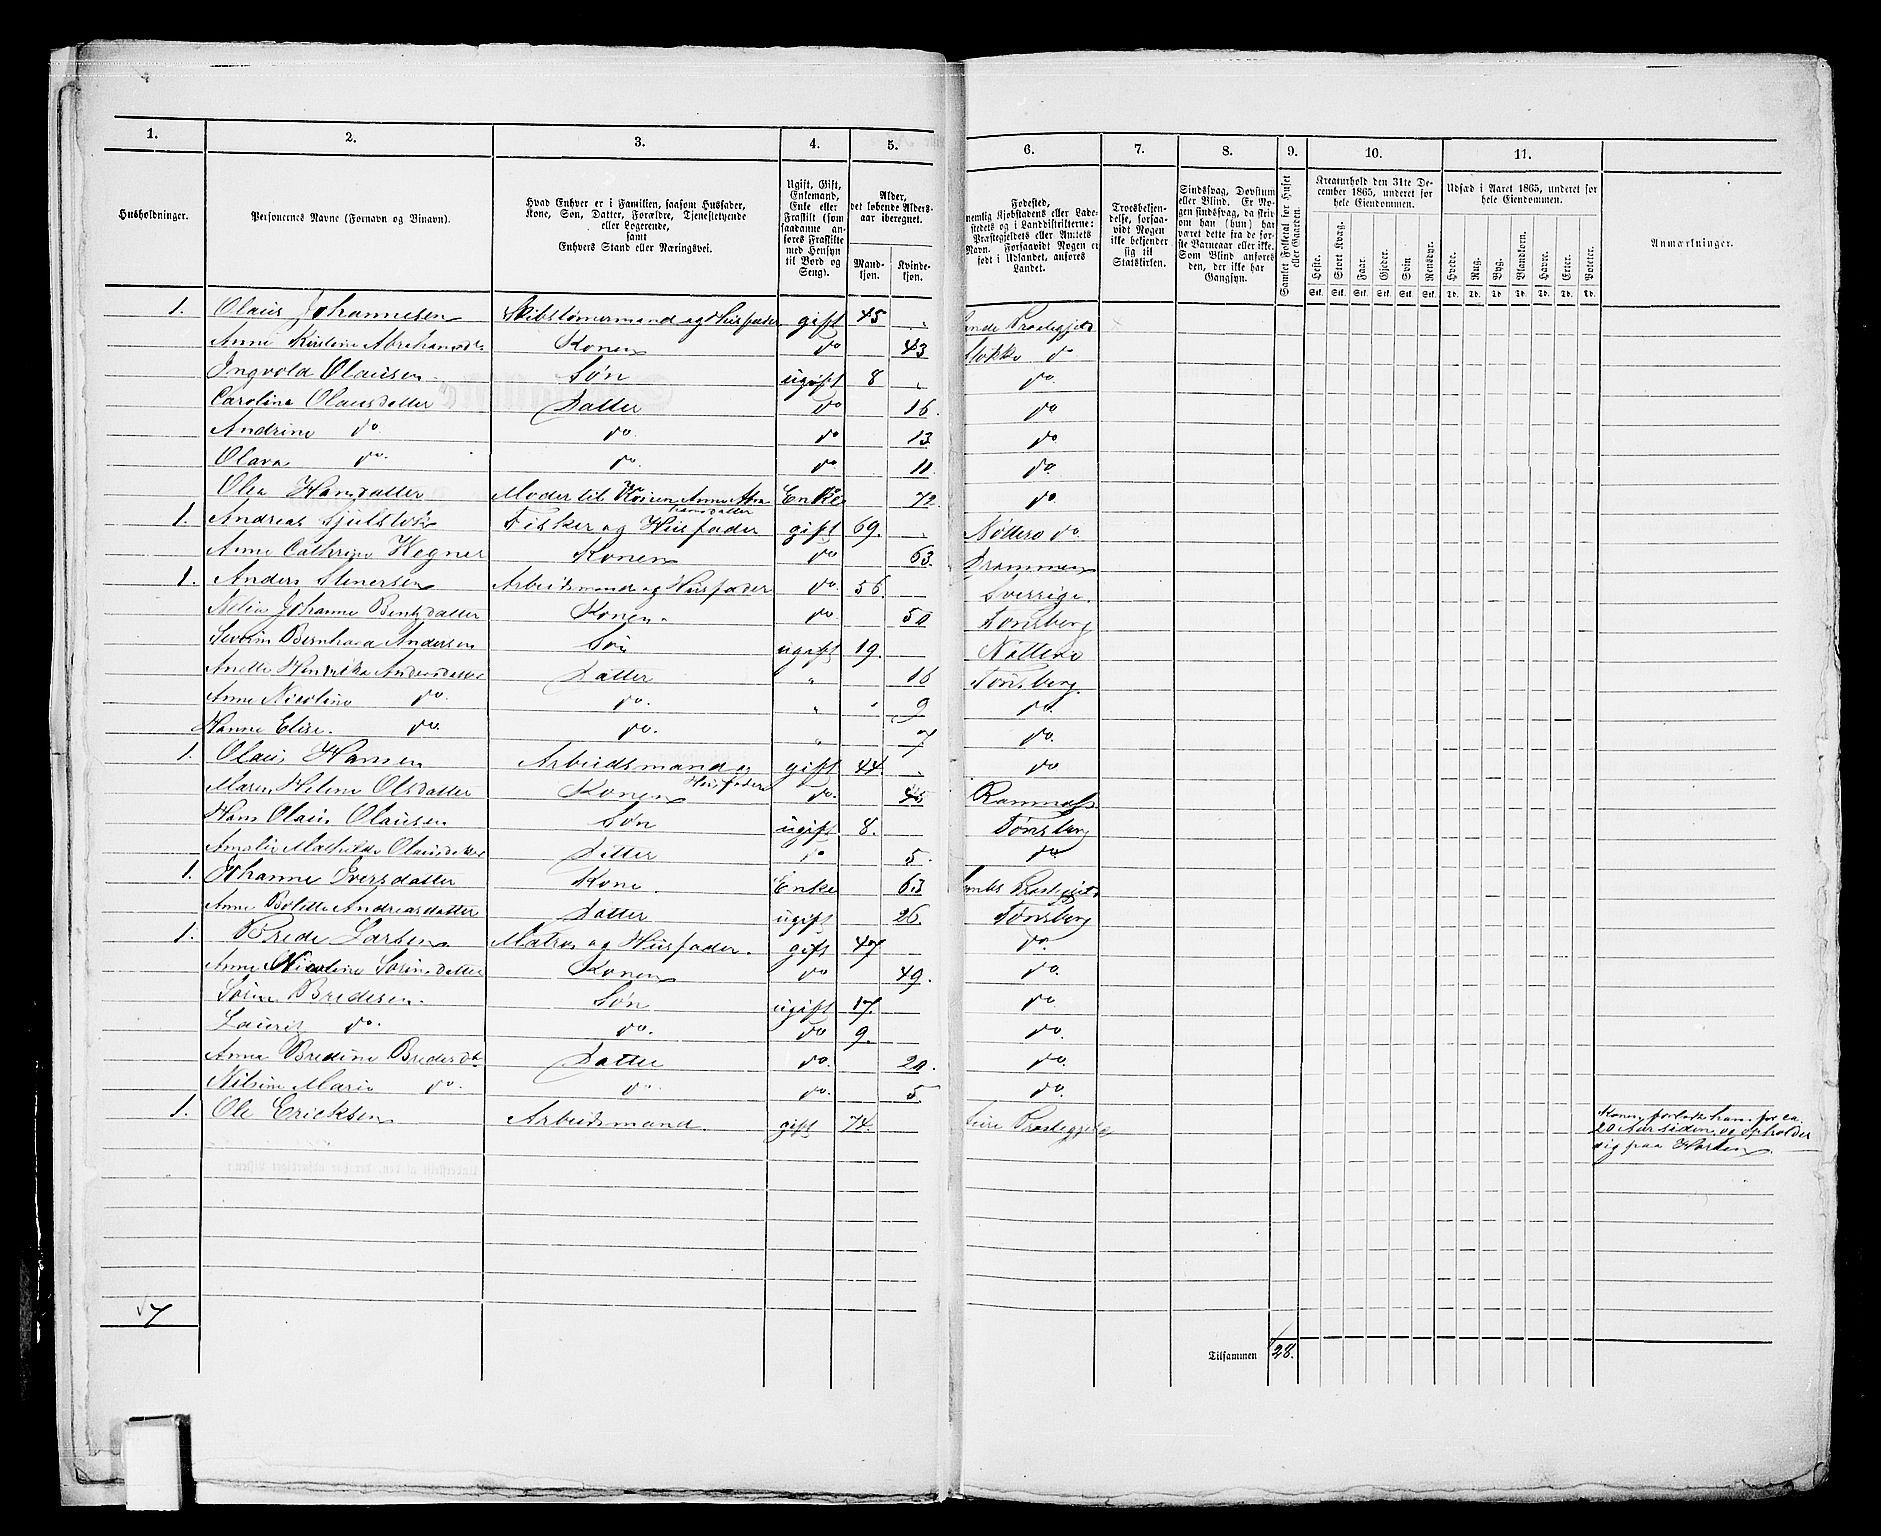 1. 2. 3. 4. 5. 6. 7. 8. 9. 10. 11.
Husholdninger.
Personernes Navne (Fornavn og Binavn).
Hvad Enhver er i Familien, saasom Husfader, Kone, Søn, Datter, Forældre, Tjenestetyende eller Logerende, samt Enhvers Stand eller Næringsvei.
Ugift, Gift, Enkemand, Enke eller Fraskilt (som saadanne anføres Fraskilte med Hensyn til Bord og Seng).
Alder, det løbende Aldersaar iberegnet.
Mandkjøn. Kvindekjøn.
Fødested, nemlig Kjøbstadens eller Ladestedets og i Landdistrikterne: Præstegjeldets eller Amtets Navn. Forsaavidt Nogen er født i Udlandet, anføres Landet.
Troesbekjendelse, forsaavidt Nogen ikke bekjender sig til Statskirken.
Sindssvag, Døvstum eller Blind. Er Nogen sindssvag, da skrives om han (hun) har været dette fra de første Barneaar eller ikke. Som Blind anføres den, der ikke har Gangsyn.
Samlet Folketal for Huset eller Gaarden.
Kreaturhold den 31te December 1865, underet for hele Eiendommen.
Heste. Stort Kvæg. Faar. Gjeder. Svin. Rensdyr.
Stk. Stk. Stk. Stk. Stk. Stk.
Udsæd i Aaret 1865, underet for hele Eiendommen.
Hvede. Rug. Byg. Blandkorn. Havre. Erter. Poteter.
Td. Td. Td. Td. Td. Td. Td.
Anmærkninger.
1. Olaus Johannesen Skibstømermand og Husfader gift 45 " Sande Præstegjeld
Anne Kirstine Abrahamsdtr Konen do 43 Stokke do
Ingvold Olausen Søn ugift 8 " do
Caroline Olausdatter Datter do 16. do
Andrine do do do 13 do
Olava do do do 11. do
Olea Hansdatter Moder til Konen Anne Abrahamsdatter Enke 72. do
1. Andreas Fisker og Husfader gift 69. " Nøtterø do
Anne Cathrine Wegner Konen do 63. Drammen
1. Anders Stenersen Arbeidsmand og Husfader do 56. Sverrige.
Johanne Bentsdatter Konen. do 50 Tønsberg
Severin Bernhard Andersen Søn ugift 19. Nøtterø
Anette Hendrikke Andersdatter Datter " 16 Tønsberg.
Anne Nicoline do. do. " " 9 do.
Hanne Elise. do. do. " 7 do.
1. Olaus Hansen Arbeidsmand og Husfader gift 44. " do
Maren Helene Olsdatter Konen do. 45 Ramnæs
Hans Olaus Olausen Søn ugift 8. Tønsberg
Amalie Mathilde Olausdatter Datter do 5. do.
1. Johanne Iversdatter Kone. Enke 63 Præstegjeld
Anne Bolette Andreasdatter Datter ugift 26. Tønsberg
1. Brede Larsen Matros og Husfader. gift 47 do.
Anne Nicoline Sørensdatter Konen do 49. do.
Søren Bredesen. Søn ugift 17. do.
Lauritz do. do. do 9. do.
Anna Bredine Bredesdtr. Datter do. 20. do.
Nilsine Marie do. do. do. 5. do.
1. Ole Ericksen Arbeidsmand gift 74. Præstegjeld Konen forlod ham for ca. 20 Aar siden og opholder sig paa Horten
7
Tilsammen 28.